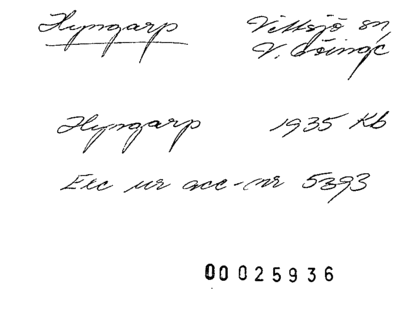 Hyngarp Vittsjö sn
V. Göinge
Hyngarp 1935 Kb
Exc ur acc-nr 5393
00025936